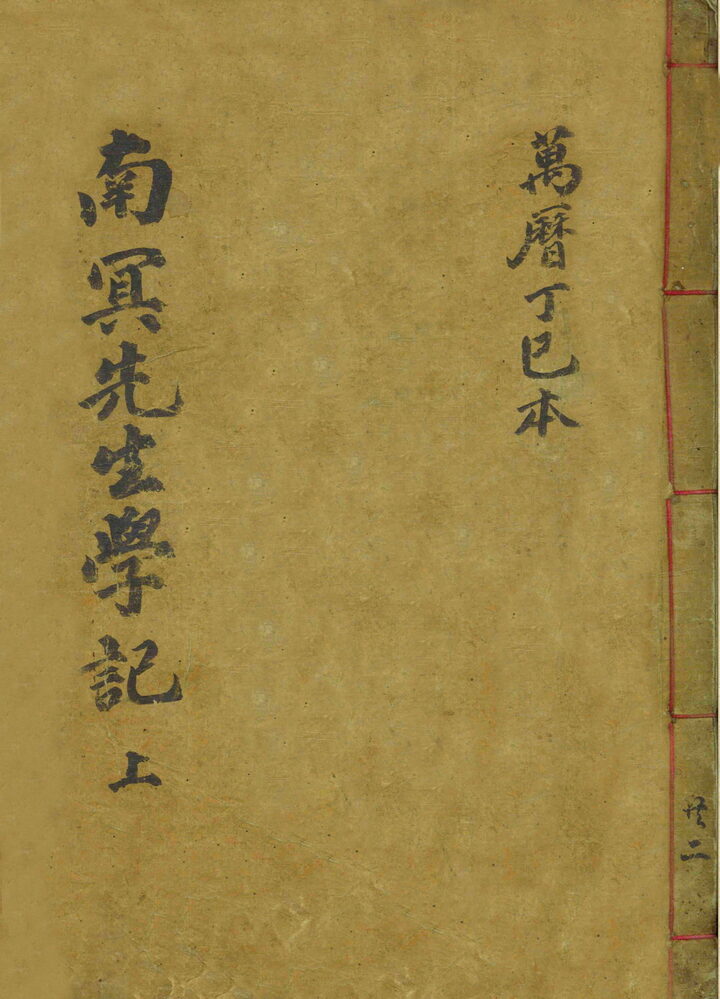 共二
萬曆丁巳本
南冥先生學記 上